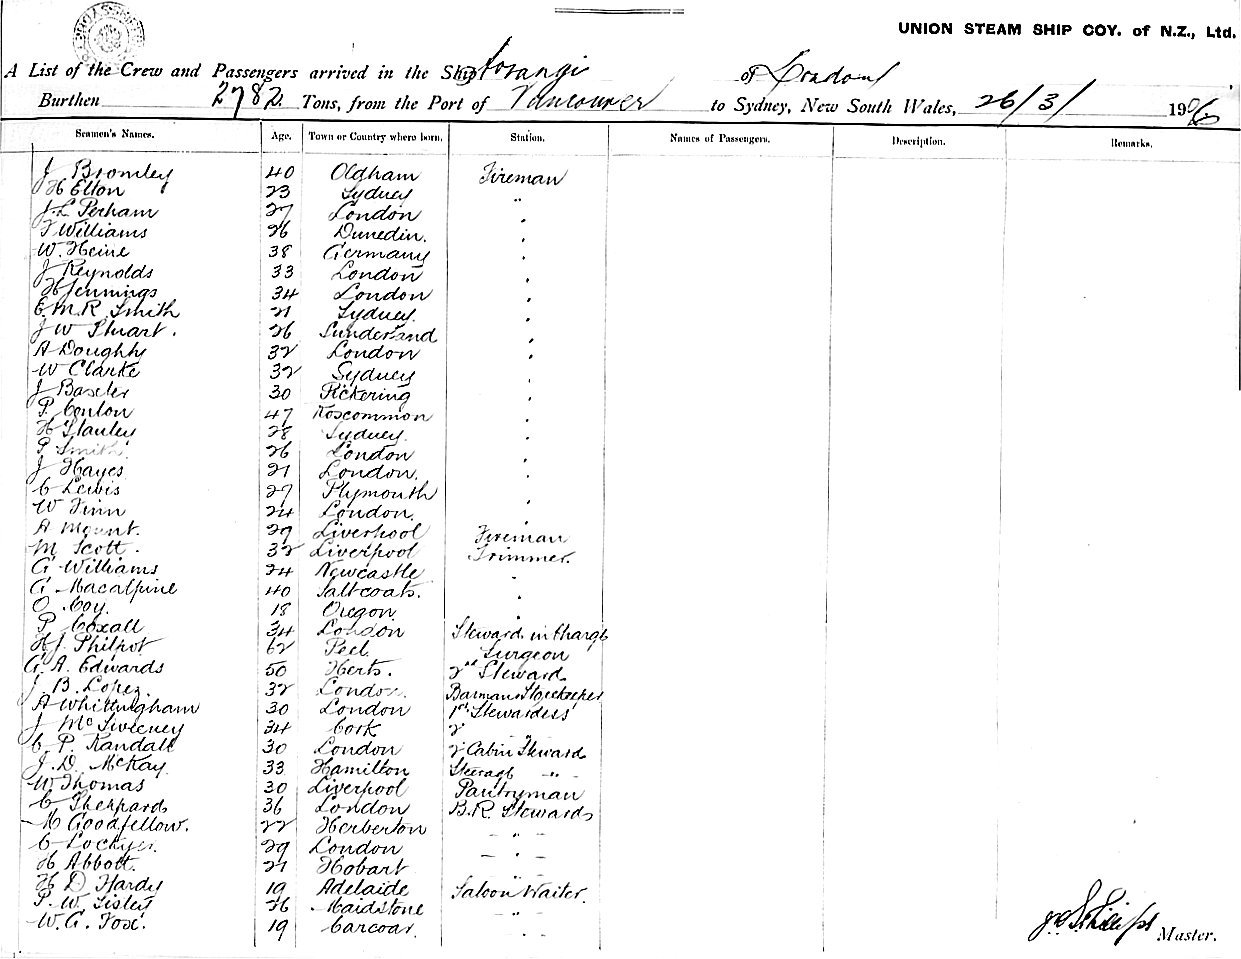 UNION STEAM SHIP COY. of N.Z., Ltd.
A List of the Crew and Passengers arrived in the Ship Aorangi of London
Burthen 2782 Tons, from the Port of Vancouver to Sydney, New South Wales, 26/3/ 1906
Seamen's Names. Age. Town or Country where born. Station. Names of Passengers. Description. Remarks.
J Bromley 40 Oldham Fireman
H Elton 23 Sydney "
J. L Perham 27 London "
T Williams 26 Dunedin. "
W. Heine 38 Germany "
J Reynolds 33 London "
H Jennings 34 London "
E. M. R Smith 21 Sydney. "
J W Stuart. 26 Sunderland "
A Doughty 32 London "
W Clarke 32 Sydney "
J Baxter 30 Pickering "
P. Conlon 47 Roscommon "
H Stanley 28 Sydney. "
P Smith 26 London "
J Hayes 21 London. "
C Lewis 27 Plymouth "
W Finn 24 London. "
A Mount. 29 Liverpool Fireman
M Scott. 32 Liverpool Trimmer.
G Williams 24 Newcastle "
G Macalpine 40 Saltcoats. "
O Coy. 18 Oregon "
P Coxall 34 London Steward in Charge
H J. Philpot 62 Peel Surgeon
G. A. Edwards 50 Herts. 2nd Steward
J. B. Lopez. 32 London. Barman & Storekeeper
A Whittingham 30 London 1st Stewardess
J McSweeney 34 Cork 2 "
C P. Randall 30 London 2 Cabin Steward
J. D. McKay 33 Hamilton Steerage - " -
W. Thomas 30 Liverpool Pantryman
C Sheppard 36 London B. R. Stewards
M Goodfellow. 22 Herberton - " -
C Lockyer. 29 London - " -
H Abbott. 21 Hobart - " -
H D Hardy 19 Adelaide Saloon Waiter.
P. W. Sisley 26 Maidstone - " -
W. G. Fox. 19 Carcoar. - " -
Master.